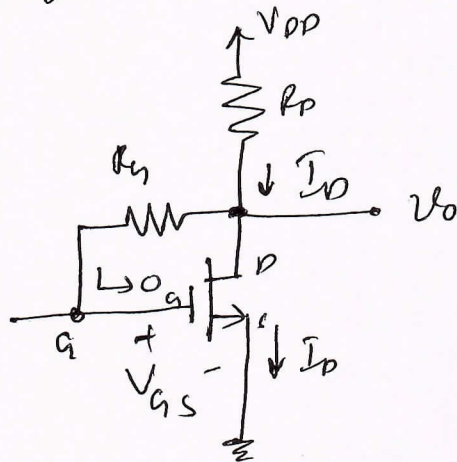 V_DD
R_D
R_G
↓ I_D
v_o
D
↳ 0
G
S
G
+
V_GS
-
↓ I_D